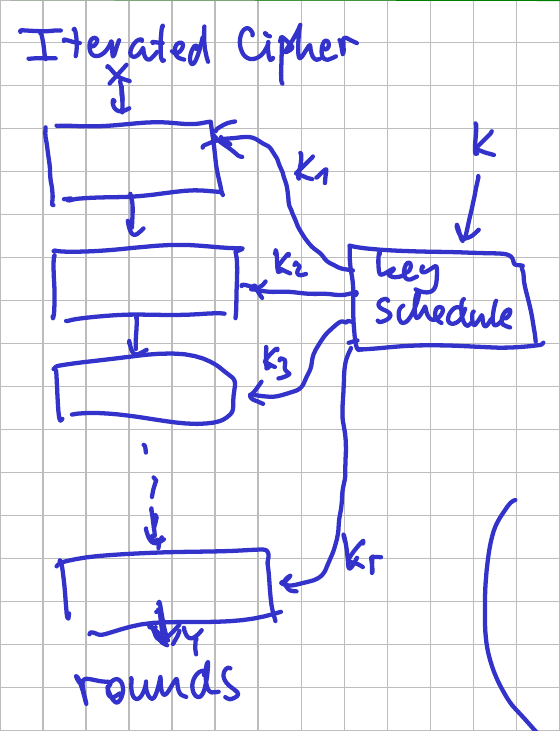 Iterated Cipher
X
K
K1
K2
key
schedule
K3
Kr
Y
rounds